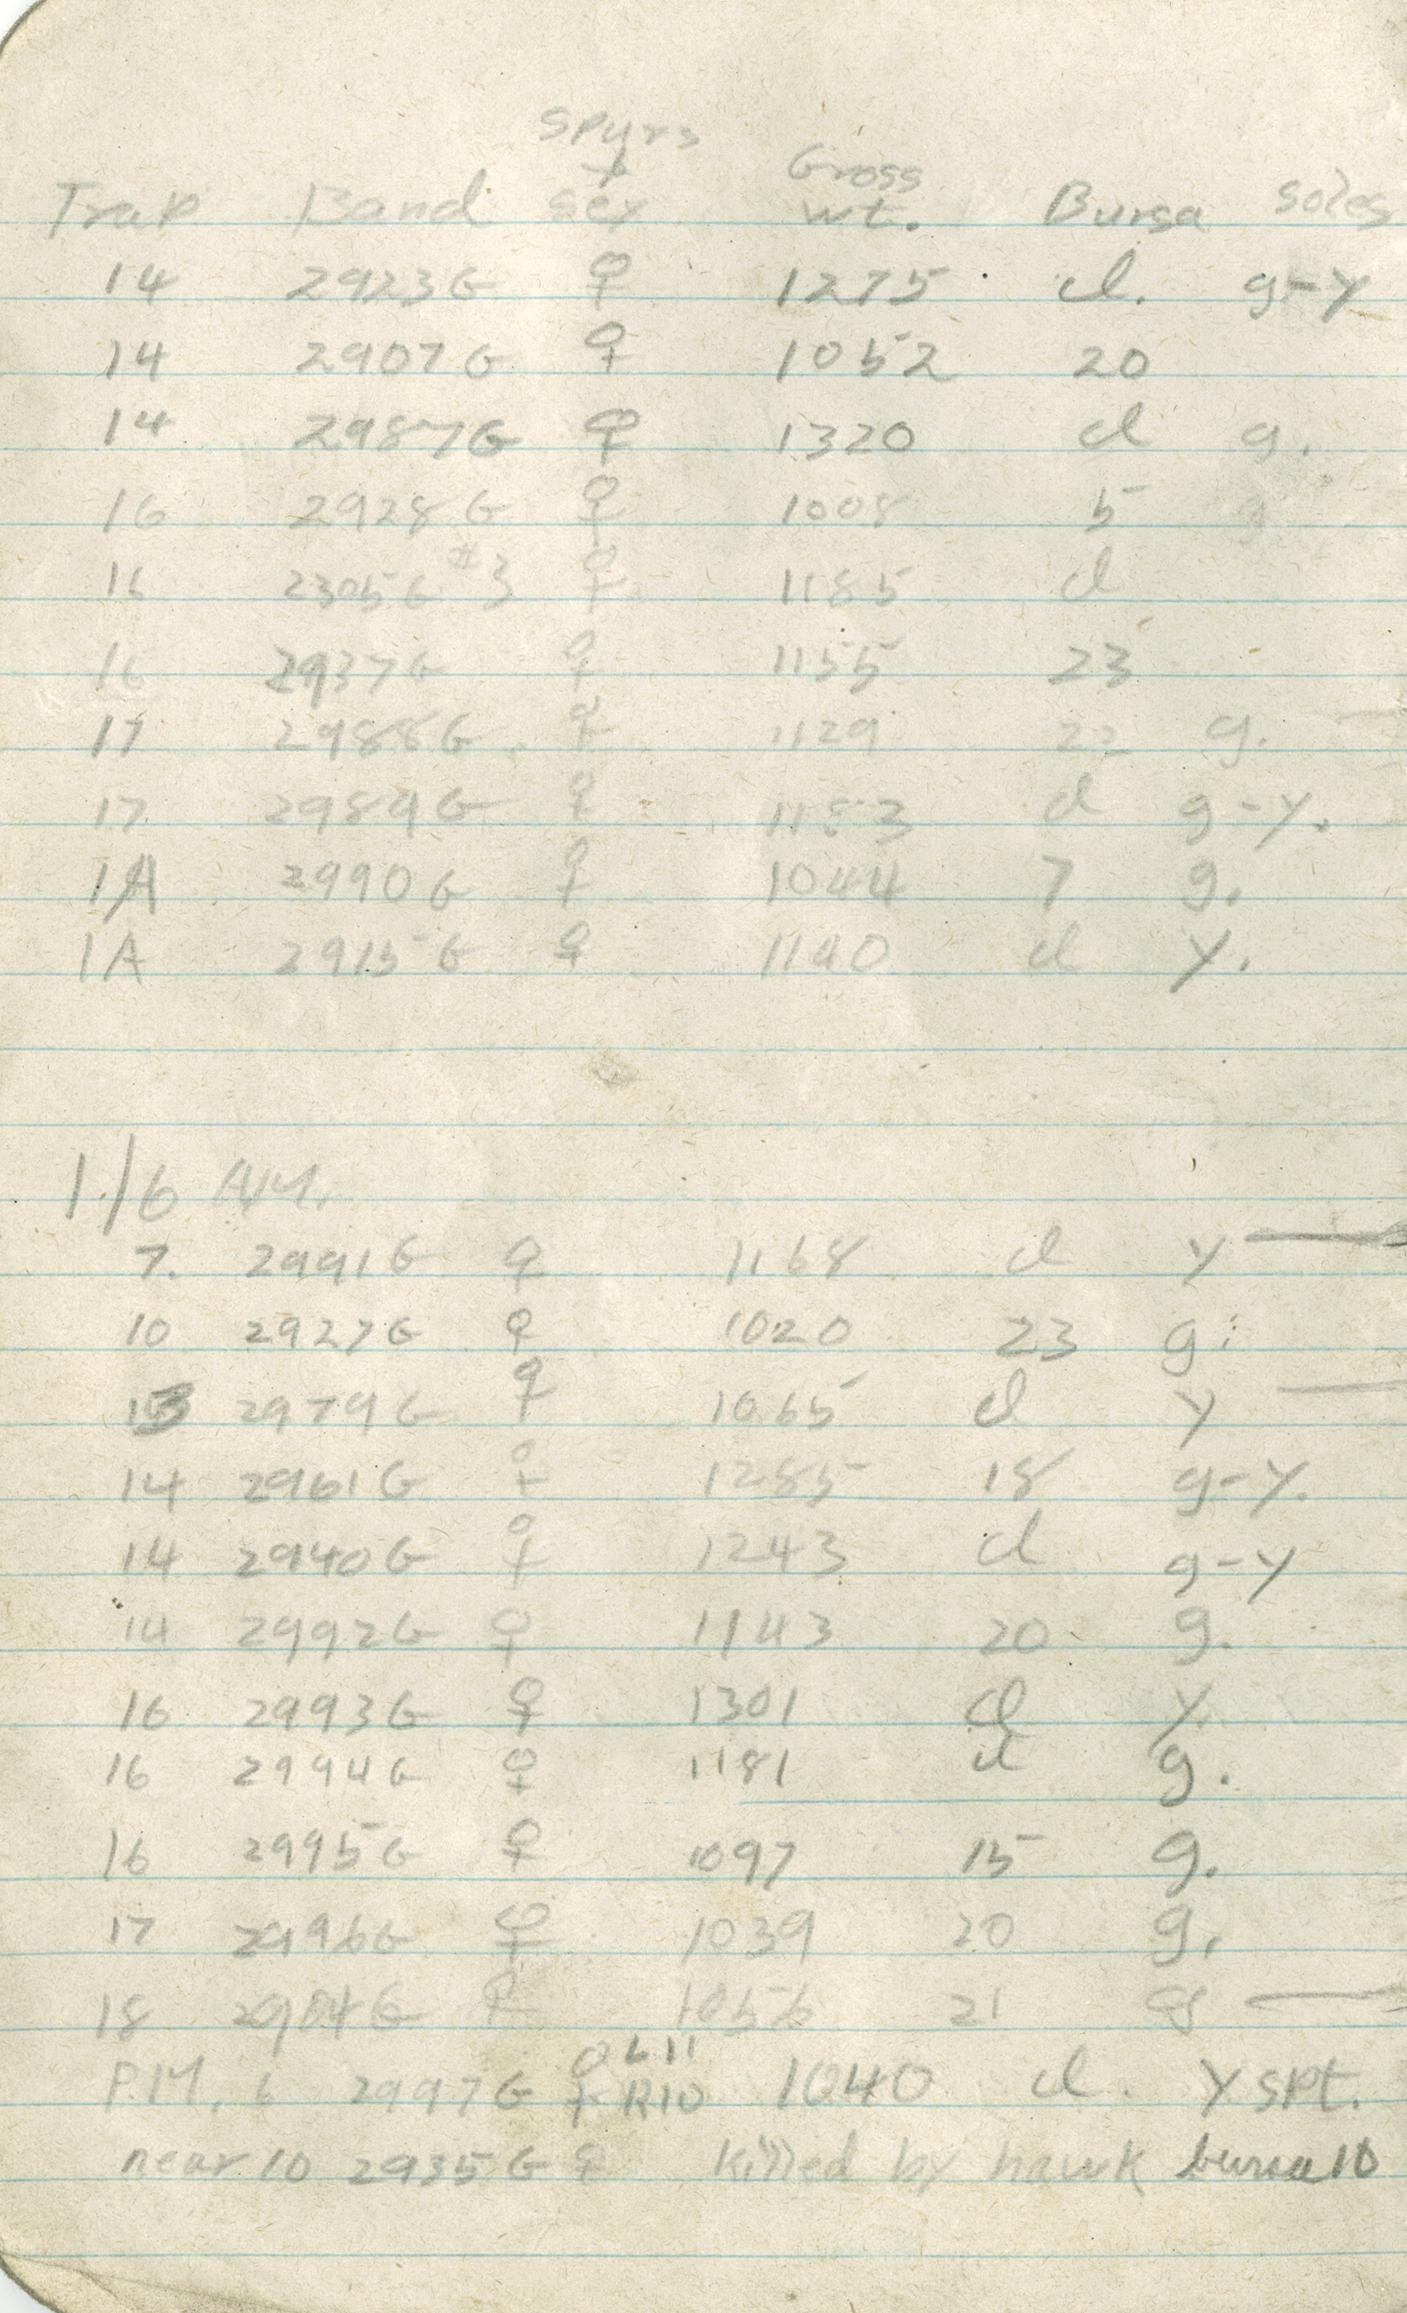 Spurs
Trap Band + sex Gross wt. Bursa soles
14 2923G ♀ 1275 cl. g-y
14 2907G ♀ 1052 20
14 2987G ♀ 1320 cl g.
16 2928G ♀ 1008 5
16 2305G #3 ♀ 1185 cl
16 2937G ♀ 1155 23
17 2988G ♀ 1129 22 g.
17 2989G ♀ 1183 cl g-y.
1A 2990G ♀ 1044 7 g.
1A 2915G ♀ 1190 cl y.
1/6 A.M.
7. 2991G ♀ 1168 cl y
10 2927G ♀ 1020 23 g.
13 2979G ♀ 1065 cl y
14 2961G ♀ 1285 18 g-y.
14 2940G ♀ 1243 cl g-y
14 2992G ♀ 1143 20 g.
16 2993G ♀ 1301 cl y.
16 2994G ♀ 1181 cl g.
16 2995G ♀ 1097 15 g.
17 2996G ♀ 1039 20 g.
18 ♀ 1056 21 g
P.M. 6 2997G ♀ L11 R10 1040 cl. y spt.
near 10 2935G ♀ killed by hawk bursa 10